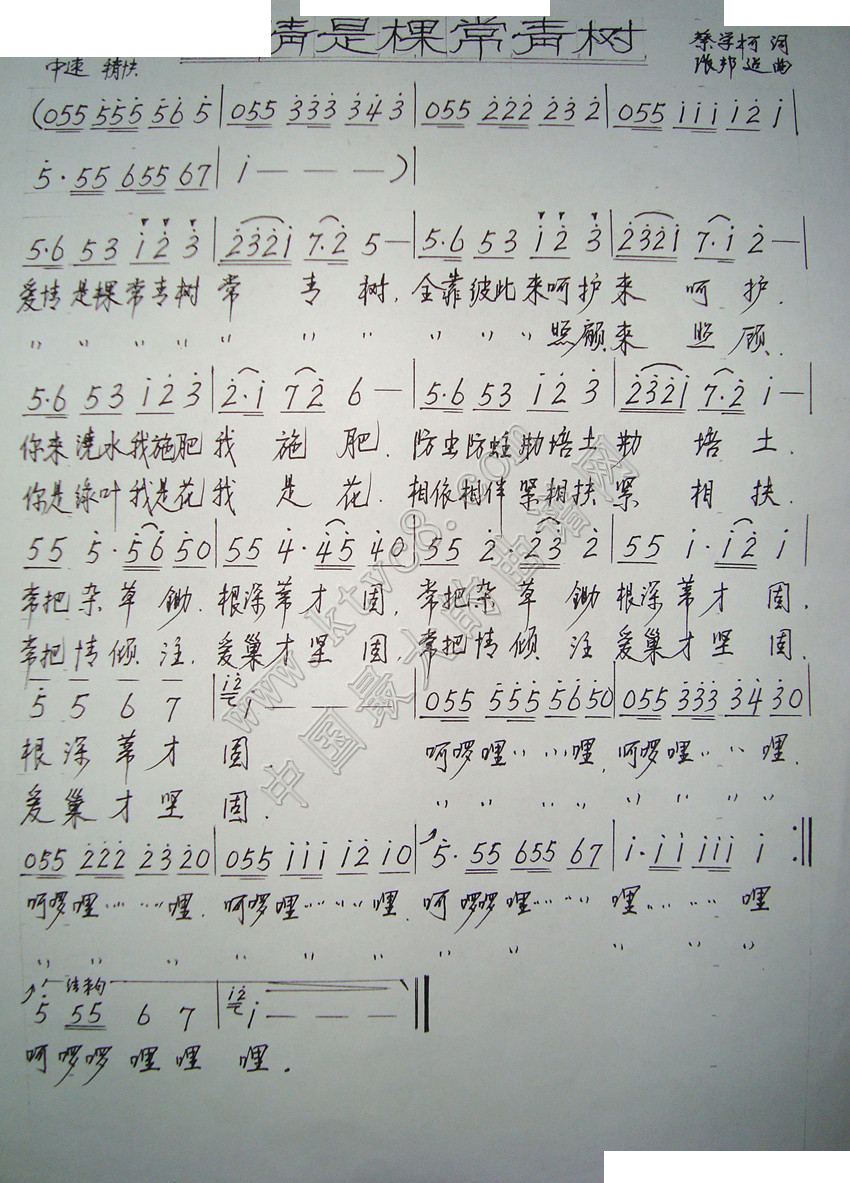 情是棵常青树
中速 稍快
蔡学柯 词
张邦 曲
(055 555 56 5 | 055 333 34 3 | 055 222 23 2 | 055 iii i2 i |
5·55 655 67 | i — — — ) |
5·6 53 i 2 3 | 2321 7·2 5 — | 5·6 53 i 2 3 | 2321 7·i 2 — |
爱情是棵常青树 常 青 树. 全靠彼此来呵护 来 呵 护.
〃 〃 〃 〃 〃 〃 〃 〃 〃 〃 照顾来 照 顾.
5·6 53 i 2 3 | 2·i 72 6 — | 5·6 53 i2 3 | 2321 7·2 i — |
你来浇水我施肥 我 施 肥. 防虫防蛀勤培土 勤 培 土.
你是绿叶我是花 我 是 花. 相依相伴紧相扶 紧 相 扶.
55 5·56 50 | 55 4·45 40 | 55 2·23 2 | 55 i·i2 i |
常把杂草锄. 根深蒂才固, 常把杂草锄 根深蒂才固.
常把情倾注, 爱巢才坚固, 常把情倾注 爱巢才坚固.
5 5 6 7 | i2 i — — — | 055 555 5650 | 055 333 3430 |
根深蒂才 固. 呵啰哩〃 〃〃哩, 呵啰哩〃 〃 哩.
爱巢才坚 固. 〃 〃 〃 〃 〃 〃 〃 〃
055 222 2320 | 055 iii i2 i0 | 5·55 655 67 | i·ii iiii i :||
呵啰哩……哩. 呵啰哩……哩. 呵啰啰哩…… 哩…… 哩
〃 〃 〃 〃 〃 〃 〃 〃 〃 〃 〃
结束句
5 55 6 7 | i2 i — — — ||
呵啰啰 哩 哩 哩.
www.ktvc8.com
中国最大歌曲谱网